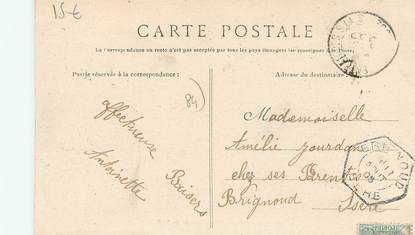 15 €
CARTE POSTALE
La Correspondance au recto n'est pas acceptée par tous les pays étrangers (se renseigner à la Poste)
Partie réservée à la correspondance :
Adresse du destinataire
84
affectueuse
Baisers
Antoinette
Mademoiselle
Amélie Jourdan
chez ses Parents
Brignoud
Isère